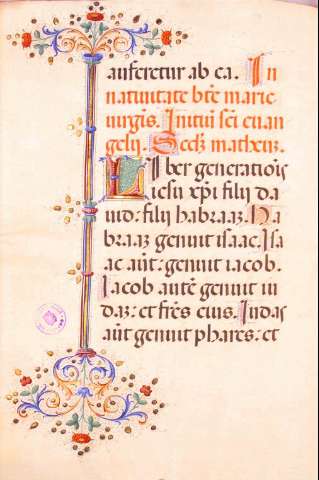 auferetur ab ea. In
natiuitate bte marie
uirgis. Initiu sci euan
gelij. Scdz matheuz.
Liber generatiois
iesu xpi filij da
uid: filij habraaz. Ha
braaz genuit isaac. Isa
ac aut: genuit iacob.
Iacob aute genuit iu
daz: et fres eius. Iudas
aut genuit phares: et